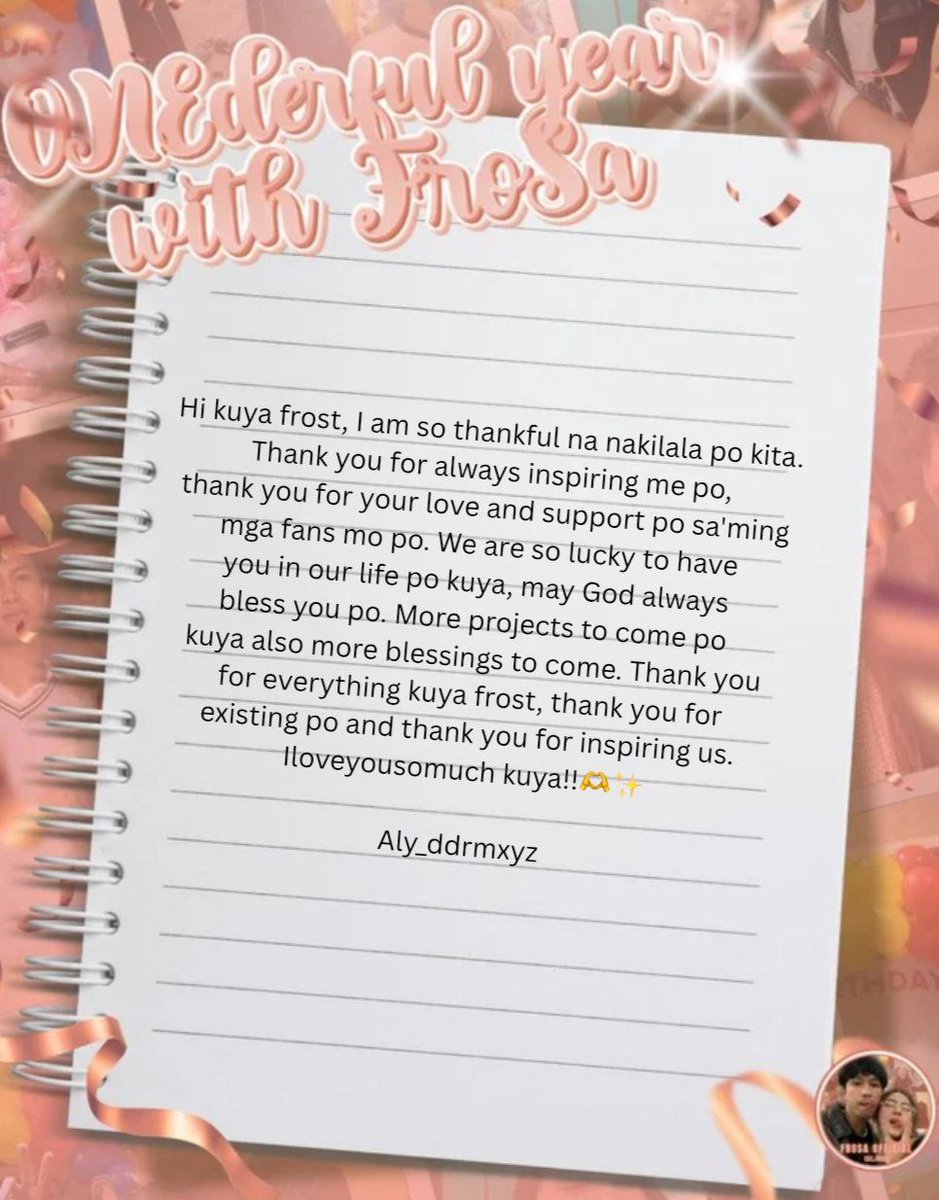 ONEderful year
with FroSa
Hi kuya frost, I am so thankful na nakilala po kita.
Thank you for always inspiring me po,
thank you for your love and support po sa'ming
mga fans mo po. We are so lucky to have
you in our life po kuya, may God always
bless you po. More projects to come po
kuya also more blessings to come. Thank you
for everything kuya frost, thank you for
existing po and thank you for inspiring us.
Iloveyousomuch kuya!!🫶✨
Aly_ddrmxyz
FROSA OFFICIAL